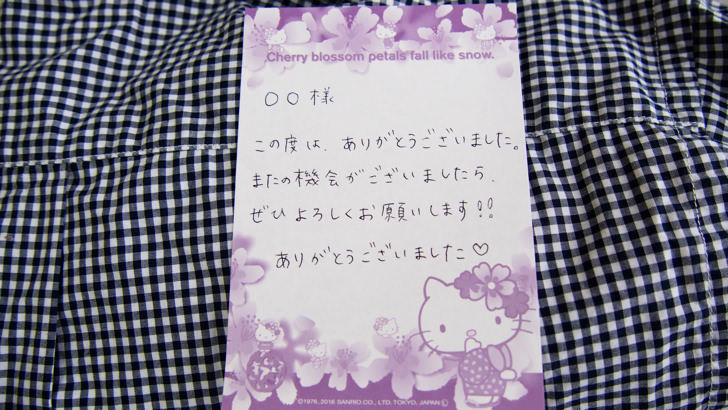 Cherry blossom petals fall like snow.
○○様
この度は、ありがとうございました。
またの機会がございましたら、
ぜひよろしくお願いします!!
ありがとうございました♡
©1976, 2016 SANRIO CO., LTD. TOKYO, JAPAN Ⓛ